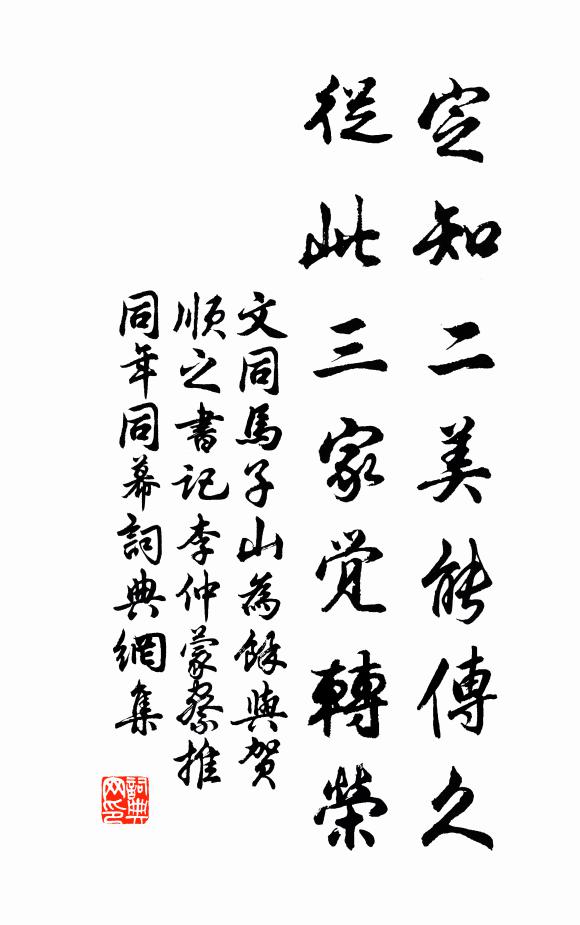 定知二美能傳久
從此三家覺轉榮
文同馬子山為餘與賀
順之書記李仲蒙察推
同年同幕詞典網集
詞典网印